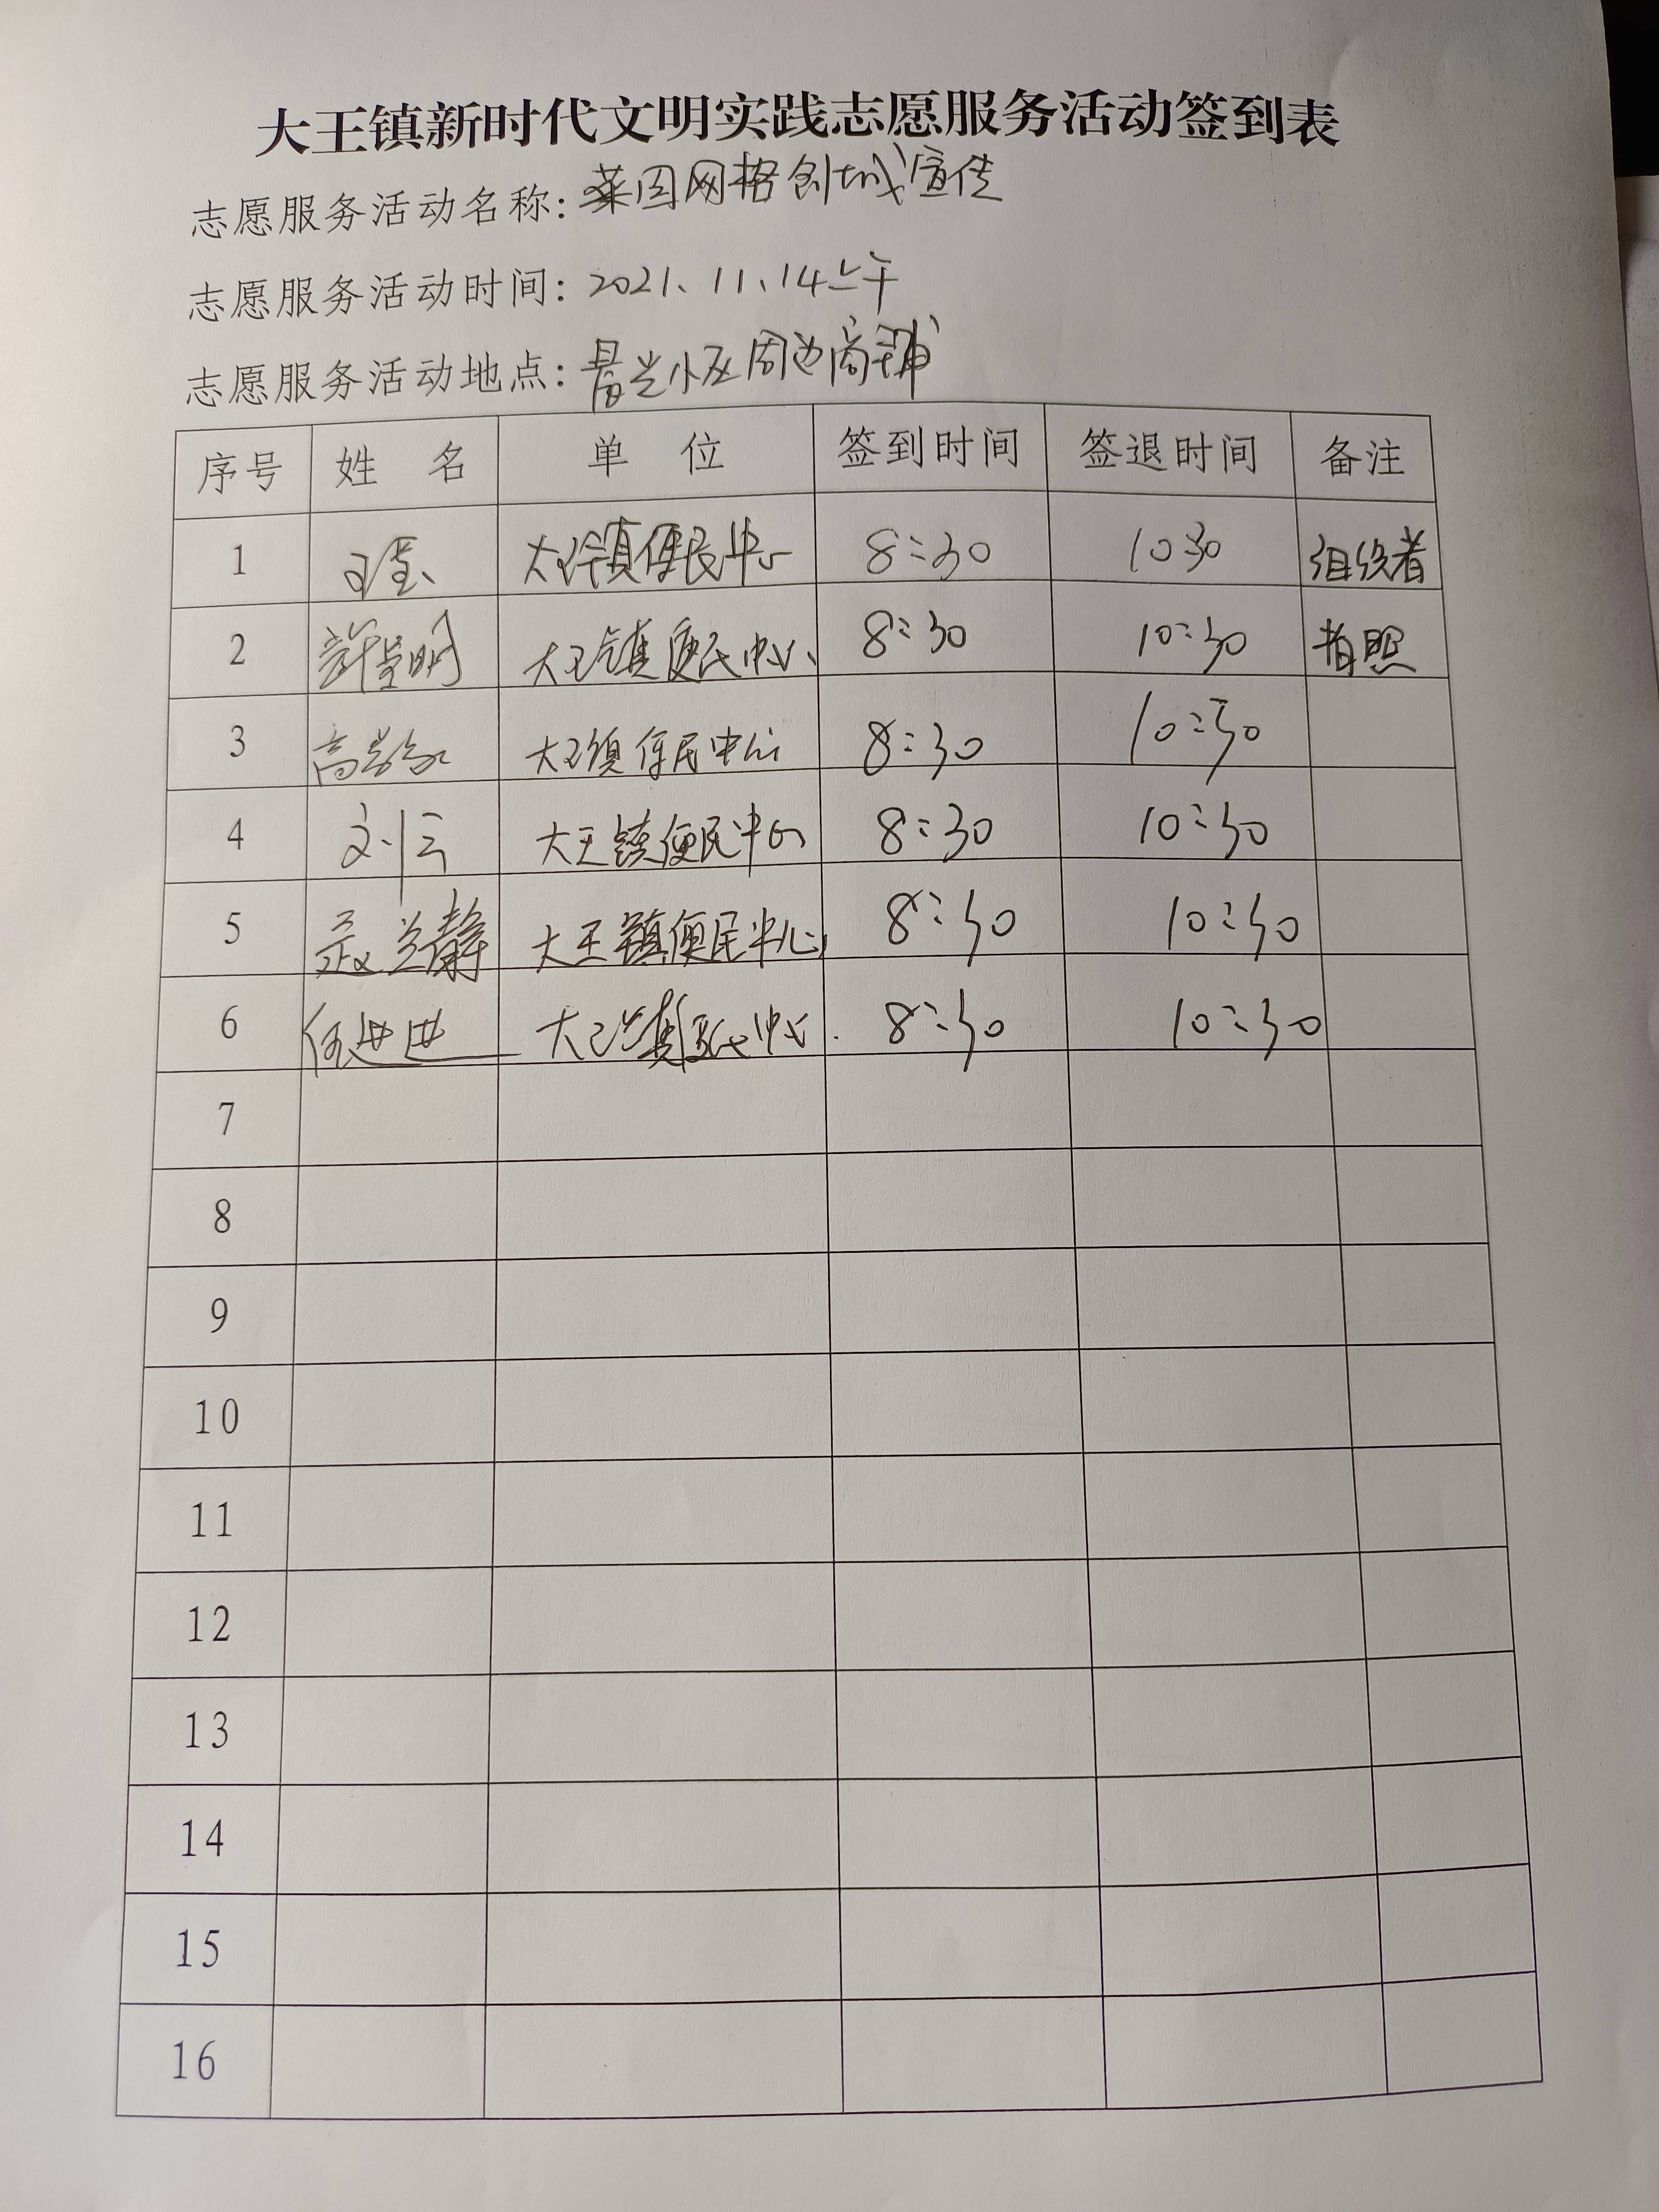 大王镇新时代文明实践志愿服务活动签到表
志愿服务活动名称:菜园网格创城宣传
志愿服务活动时间:2021、11、14上午
志愿服务活动地点:晨兴小区周边商铺
序号 姓 名 单 位 签到时间 签退时间 备注
1 大王镇便民中心 8:30 10:30 组织者
2 大王镇便民中心 8:30 10:30 拍照
3 大王镇便民中心 8:30 10:30
4 刘云 大王镇便民中心 8:30 10:30
5 大王镇便民中心 8:30 10:30
6 任进进 大王镇便民中心 8:30 10:30
7
8
9
10
11
12
13
14
15
16